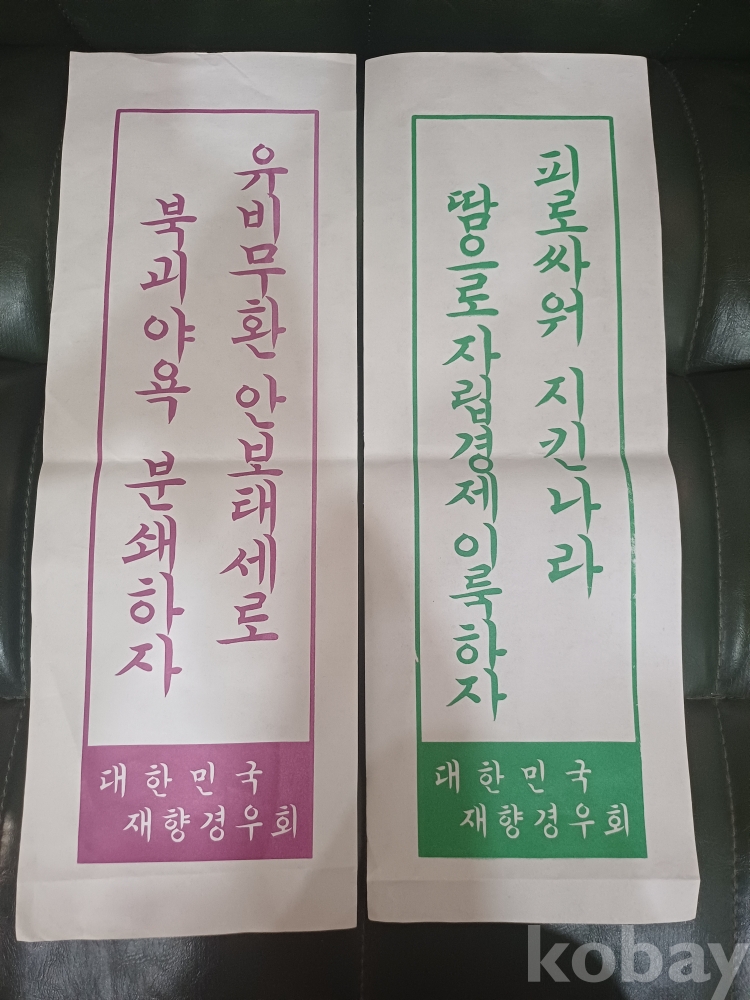 유비무환 안보태세로
북괴야욕 분쇄하자
대한민국
재향경우회
피로싸워 지킨나라
땀으로 자립경제이룩하자
대한민국
재향경우회
kobay